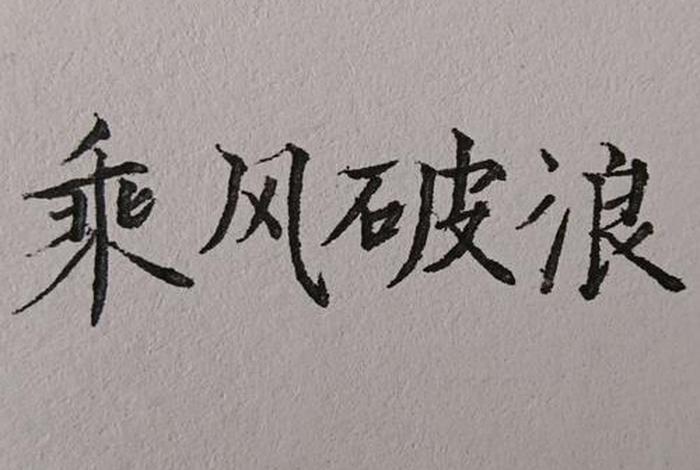 乘风破浪